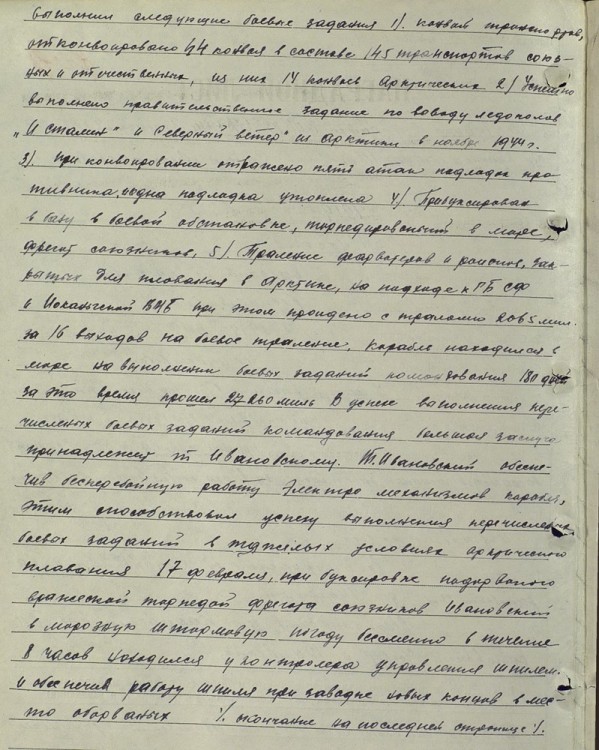 выполнил следующие боевые задания 1/. конвой транспортов,
отконвоировано 44 конвоя в составе 145 транспортов союз-
ных и отечественных, из них 14 конвоев Арктических 2/ Успешно
выполнено правительственное задание по выводу ледоколов
„И Сталин" и Северный ветер" из Арктики в ноябре 1944 г.
3/. При конвоировании отражено пять атак подлодок про-
тивника, одна подлодка утоплена 4/ Прибуксирован
в базу в боевой обстановке, торпедированный в море,
фрегат союзников, 5/ Траление фарватеров и районов, зак-
рытых для плавания в Арктике, на подходе к ГБ СФ
и Иоканьгской ВМБ при этом пройдено с тралами 2065 мил.
за 16 выходов на боевое траление, корабль находился в
море на выполнении боевых заданий командования 180 дней
за это время прошел 27260 миль В успехе выполнения пере-
численых боевых заданий командования большая заслуга
принадлежит т Ивановскому. Т. Ивановский обеспе-
чив бесперебойную работу Электро механизмов корабля,
этим способствовал успеху выполнения перечисленных
боевых заданий в тяжелых условиях арктического
плавания 17 февраля, при буксировке подорваного
вражеской торпедой фрегата союзников Ивановский
в морозную штормовую погоду бессменно в течение
8 часов находился у контролера управления шпилем.
и обеспечил работу шпиля при заводке новых концов в мес-
то оборваных ·/. окончание на последней странице ·/.